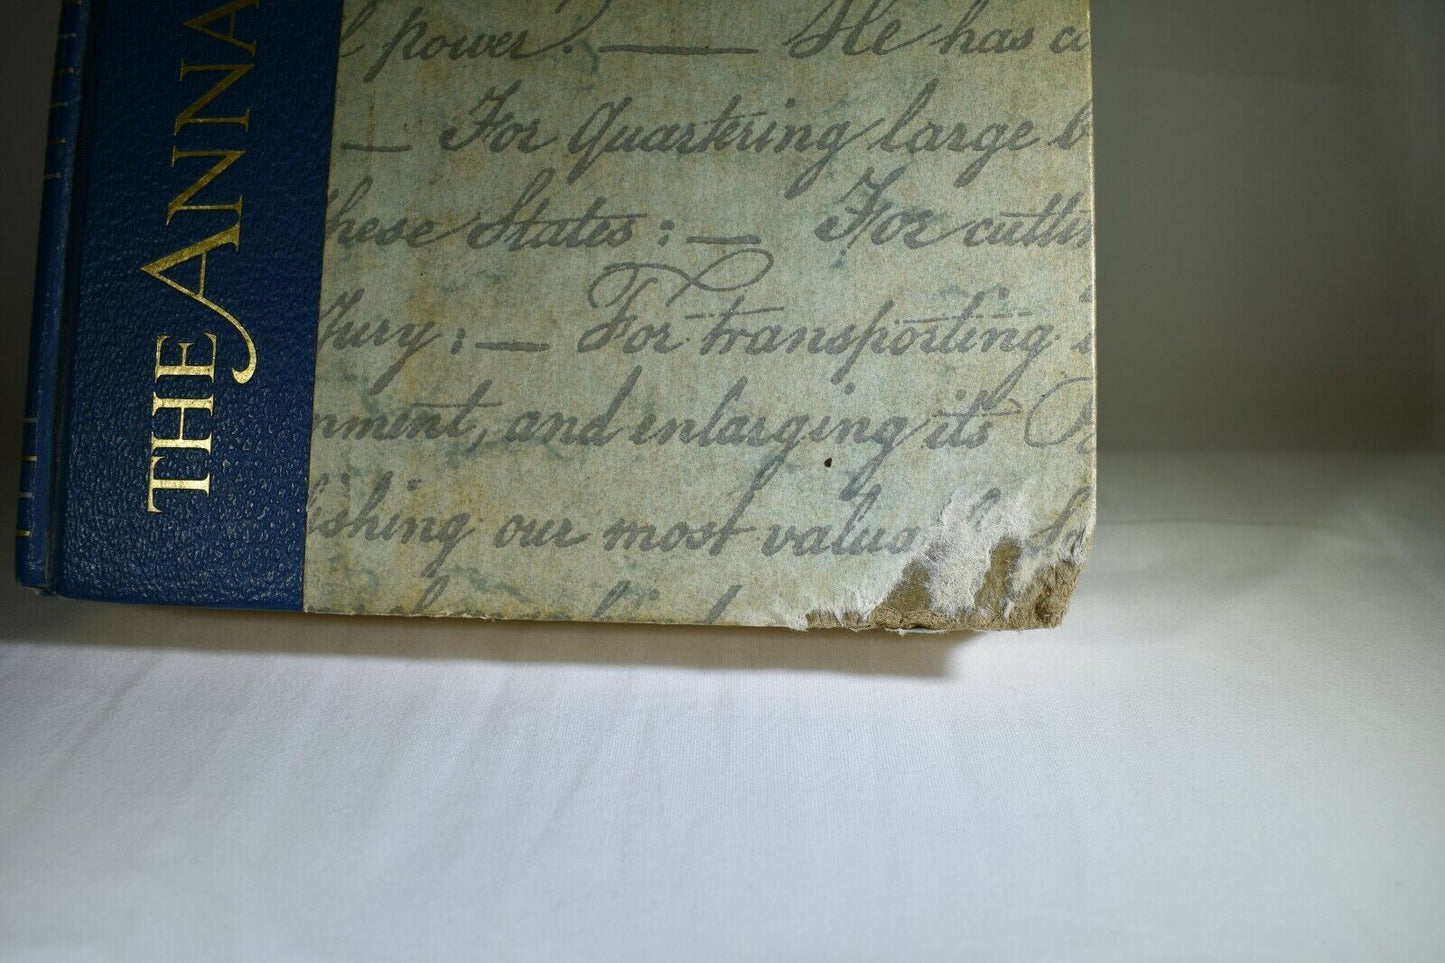 THE ANNA
l power. — He has co
— For quartering large b
these States: — For cuttin
Jury: — For transporting
nment, and enlarging its
ishing our most valua